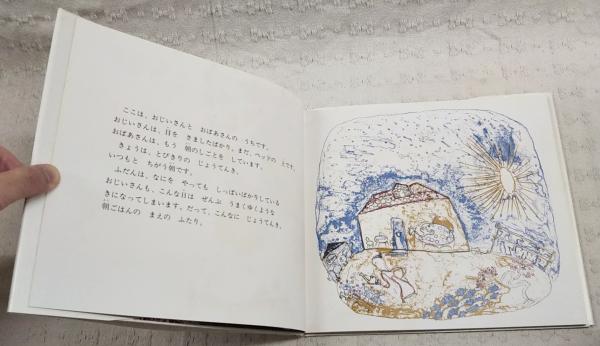 ここは、おじいさんと　おばあさんの　うちです。
おじいさんは、目を　さましたばかり。まだ、ベッドの　上です。
おばあさんは、もう　朝のしごとを　しています。
きょうは、とびきりの　じょうてんき。
いつもと　ちがう朝です。
ふだんは、なにを　やっても　しっぱいばかりしている
おじいさんも、こんな日は　ぜんぶ　うまくゆくような
きになってしまいます。だって、こんなに　じょうてんき。
朝ごはんの　まえの　ふたり。